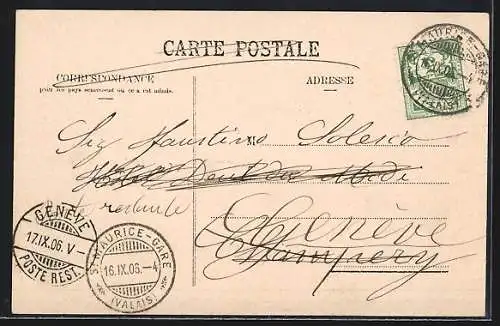 CARTE POSTALE
CORRESPONDANCE
pour les pays seulement où ce est admis.
ADRESSE
ST MAURICE-GARE
(VALAIS)
Sig Faustino Solesio
Hôtel Dent du Midi
restante
Genève
Champéry
GENÈVE
17.IX.06.V
POSTE REST.
ST MAURICE-GARE
16.IX.06.-4
(VALAIS)